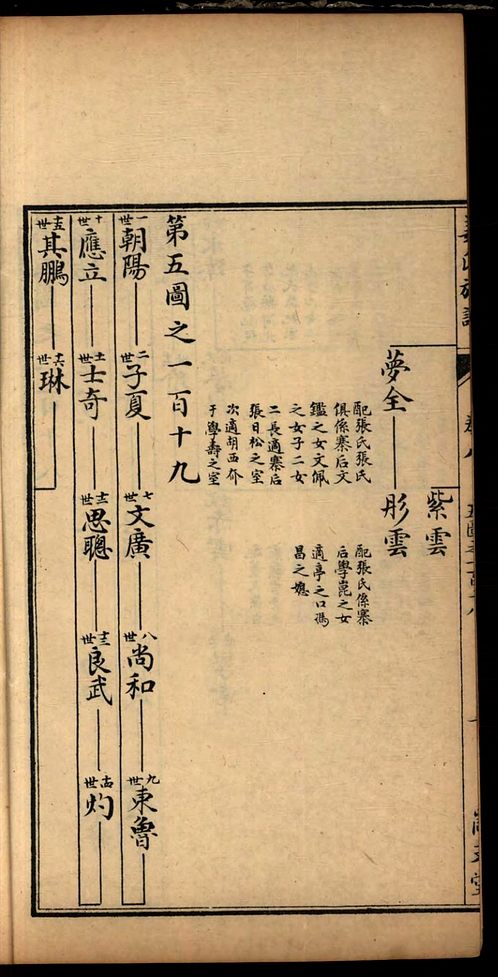 紫雲
夢全
彤雲
配張氏張氏
俱係寨后文
鑑之女文佩
之女子二女
二長適寨后
張日松之室
次適胡西夼
于學壽之室
配張氏係寨
后學崑之女
適亭之口馮
昌之媳
第五圖之一百十九
一世 朝陽
二世 子夏
七世 文廣
八世 尚和
九世 東魯
十世 應立
十一世 士奇
十二世 思聰
十三世 良武
十四世 灼
十五世 其鵬
十六世 琳